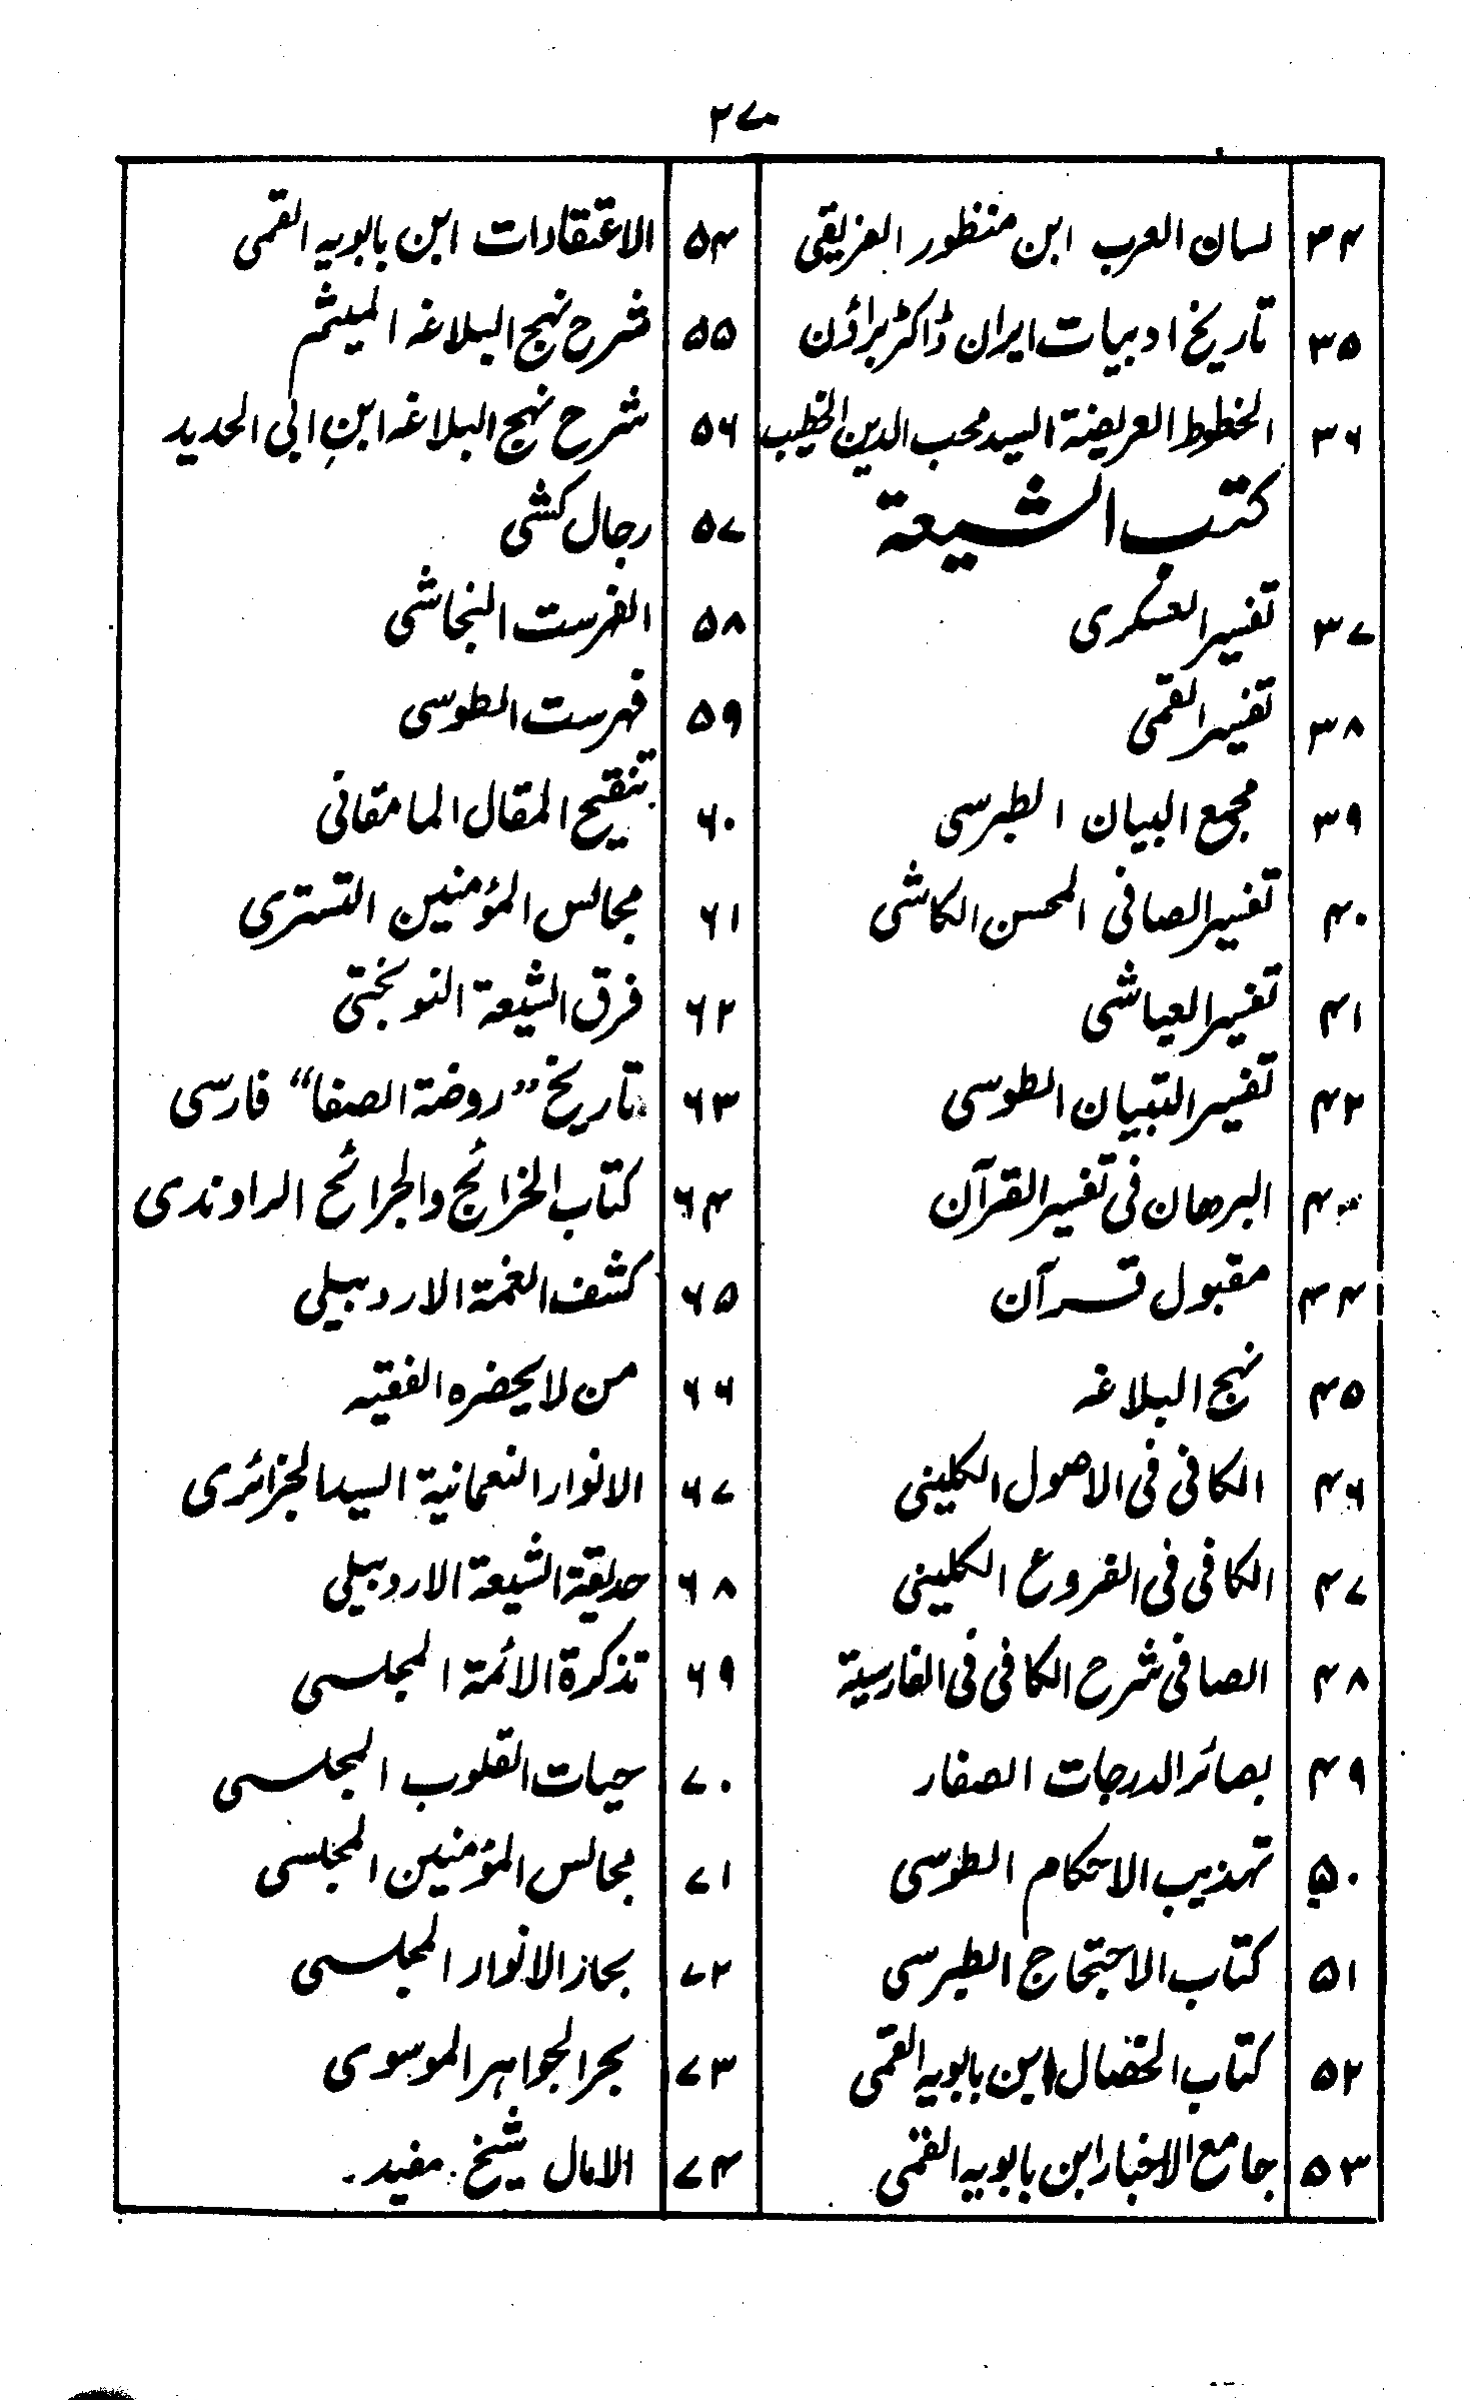 ۲۷۰
۳۴ لسان العرب ابن منظور العزیقی
۳۵ تاریخ ادبیات ایران ڈاکٹر براؤن
۳۶ الخطوط العریضة السید محب الدین الخطیب
کتب الشیعة
۳۷ تفسیر العسکری
۳۸ تفسیر القمی
۳۹ مجمع البیان الطبرسی
۴۰ تفسیر الصافی المحسن الکاشی
۴۱ تفسیر العیاشی
۴۲ تفسیر التبیان الطوسی
۴۳ البرهان فی تفسیر القرآن
۴۴ مقبول قرآن
۴۵ نہج البلاغه
۴۶ الکافی فی الاصول الکلینی
۴۷ الکافی فی الفروع الکلینی
۴۸ الصافی شرح الکافی فی الفارسیة
۴۹ بصائر الدرجات الصفار
۵۰ تہذیب الاحکام الطوسی
۵۱ کتاب الاحتجاج الطبرسی
۵۲ کتاب الخصال ابن بابویه القمی
۵۳ جامع الاخبار ابن بابویه القمی
۵۴ الاعتقادات ابن بابویه القمی
۵۵ شرح نہج البلاغه المیثم
۵۶ شرح نہج البلاغه ابنِ ابی الحدید
۵۷ رجال کشی
۵۸ الفہرست النجاشی
۵۹ فہرست الطوسی
۶۰ تنقیح المقال المامقانی
۶۱ مجالس المؤمنین التستری
۶۲ فرق الشیعة النوبختی
۶۳ تاریخ "روضة الصفا" فارسی
۶۴ کتاب الخرائج والجرائح الراوندی
۶۵ کشف الغمة الاردبیلی
۶۶ من لا یحضره الفقیه
۶۷ الانوار النعمانیة السید الجزائری
۶۸ حدیقة الشیعة الاردبیلی
۶۹ تذکرة الائمة المجلسی
۷۰ حیات القلوب المجلسی
۷۱ مجالس المؤمنین المجلسی
۷۲ بحار الانوار المجلسی
۷۳ بحر الجواہر الموسوی
۷۴ الامال شیخ مفید۔